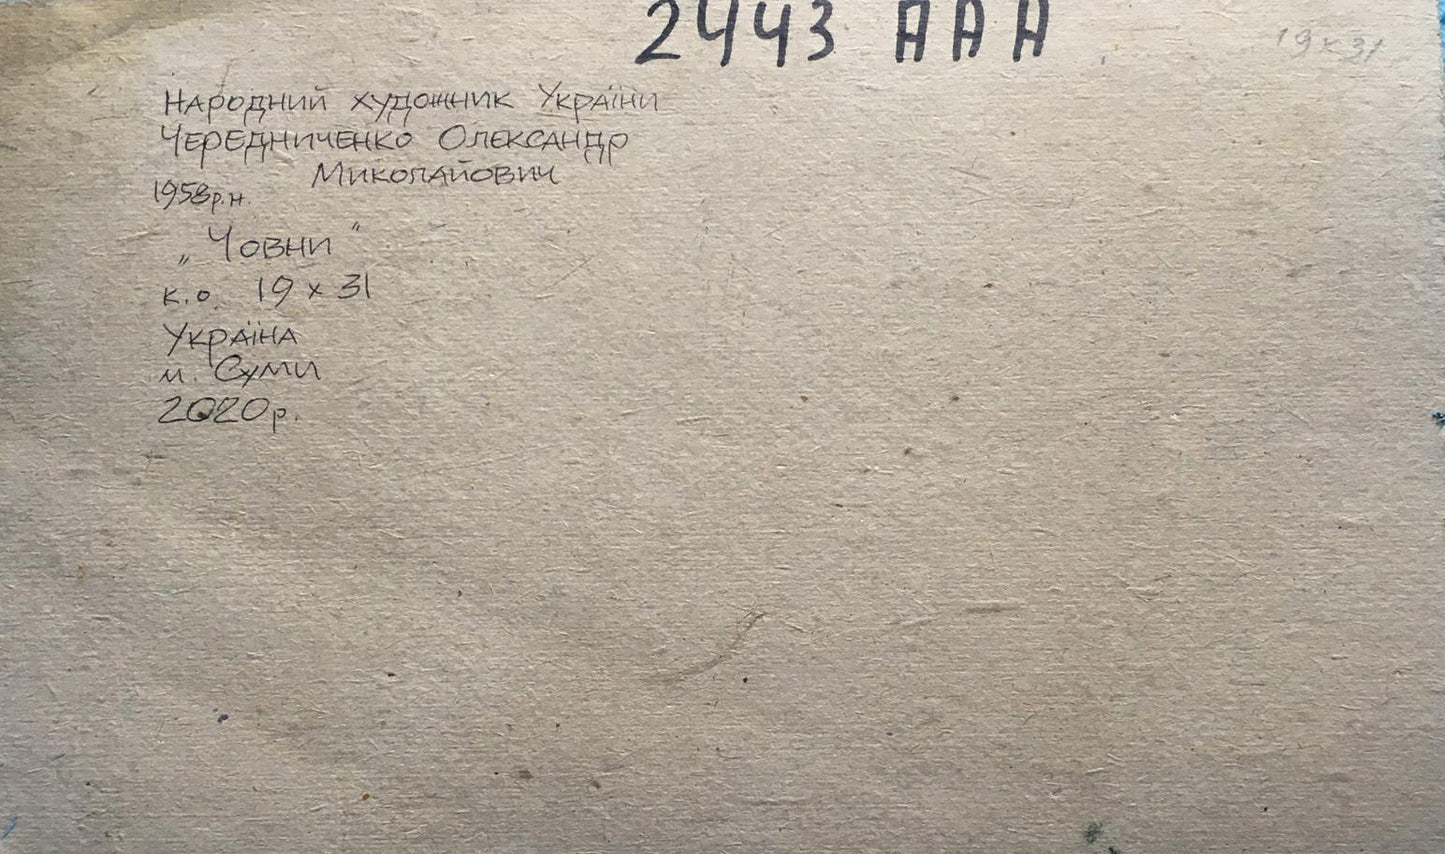 2443 AAA
19 x 31
Народний художник України
Чередниченко Олександр
Миколайович
1958р.н.
„Човни"
к.о. 19 x 31
Україна
м. Суми
2020р.